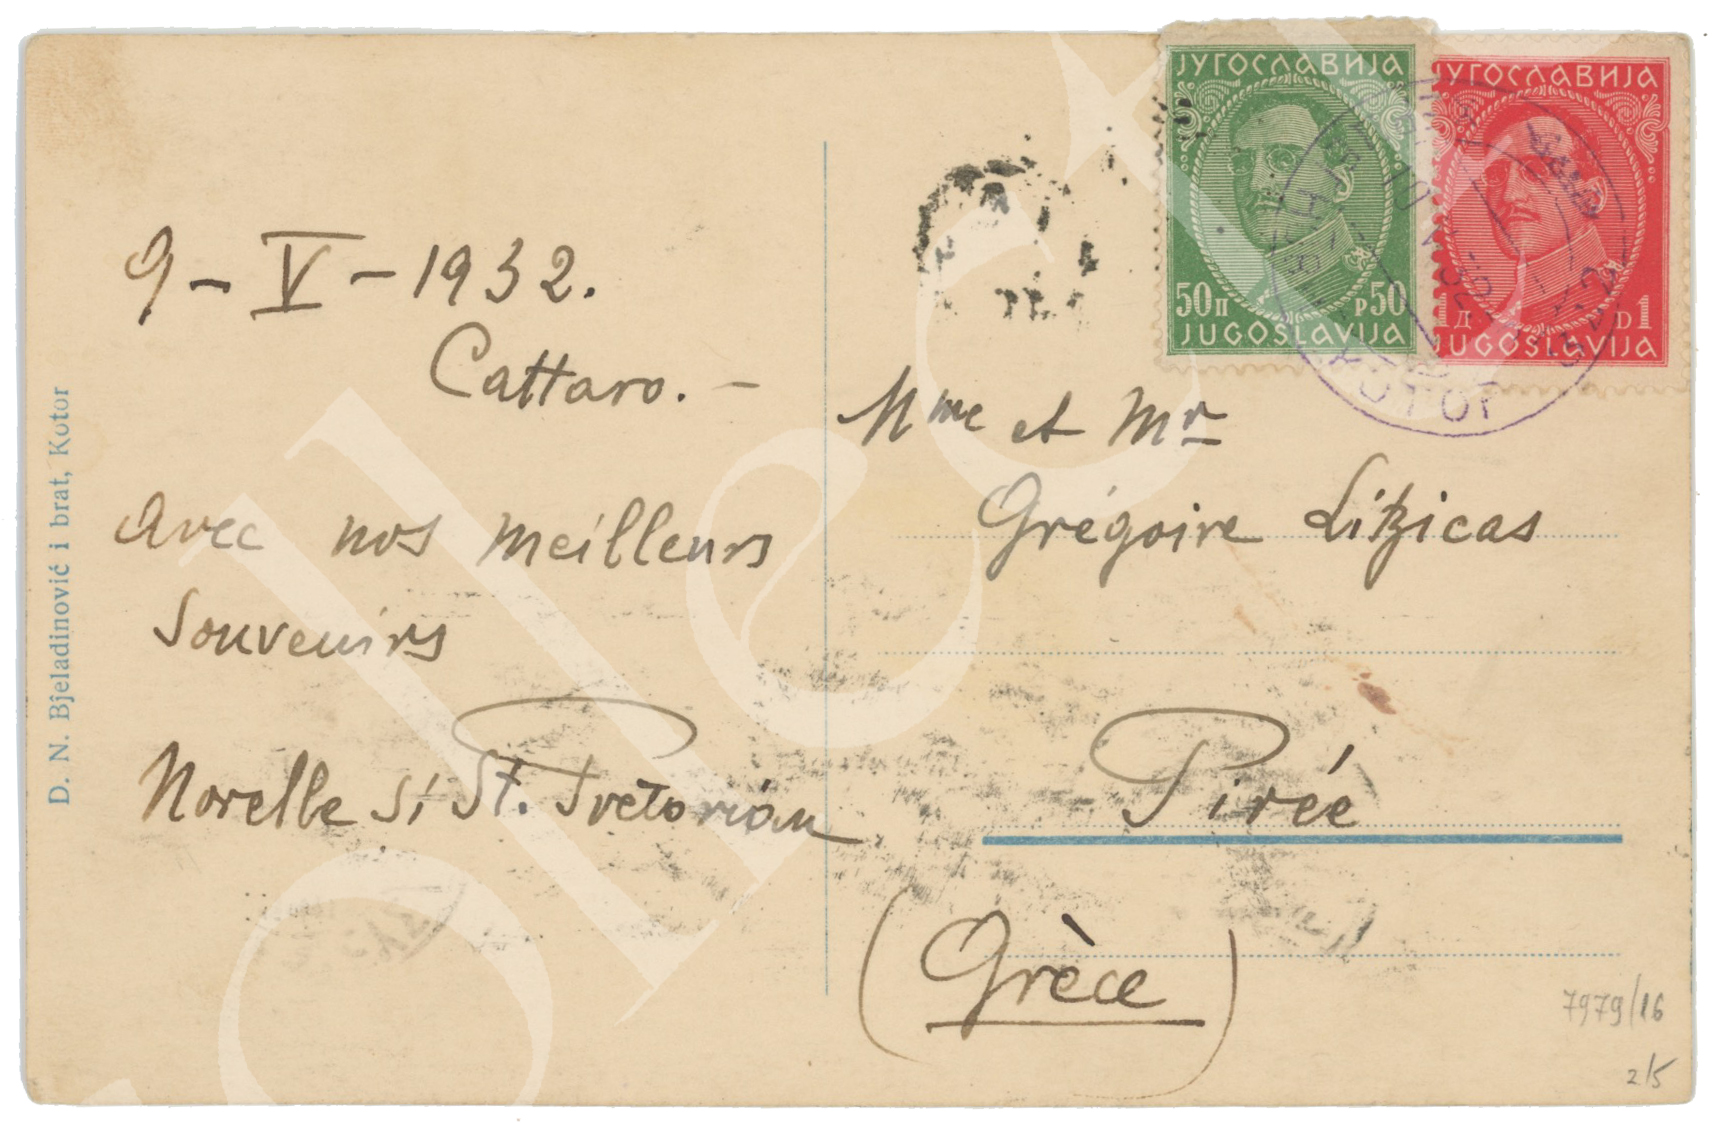 9 - V - 1932.
Cattaro. -
avec nos meilleurs
souvenirs
Norelle si St. Pretorian
D. N. Bjeladinović i brat, Kotor
ЈУГОСЛАВИЈА
50П P50
JUGOSLAVIJA
ЈУГОСЛАВИЈА
1Д D1
JUGOSLAVIJA
KOTOR
10 V 32
Mme et Mr
Grégoire Litzicas
Pirée
(Grèce)
7979/16
2/5